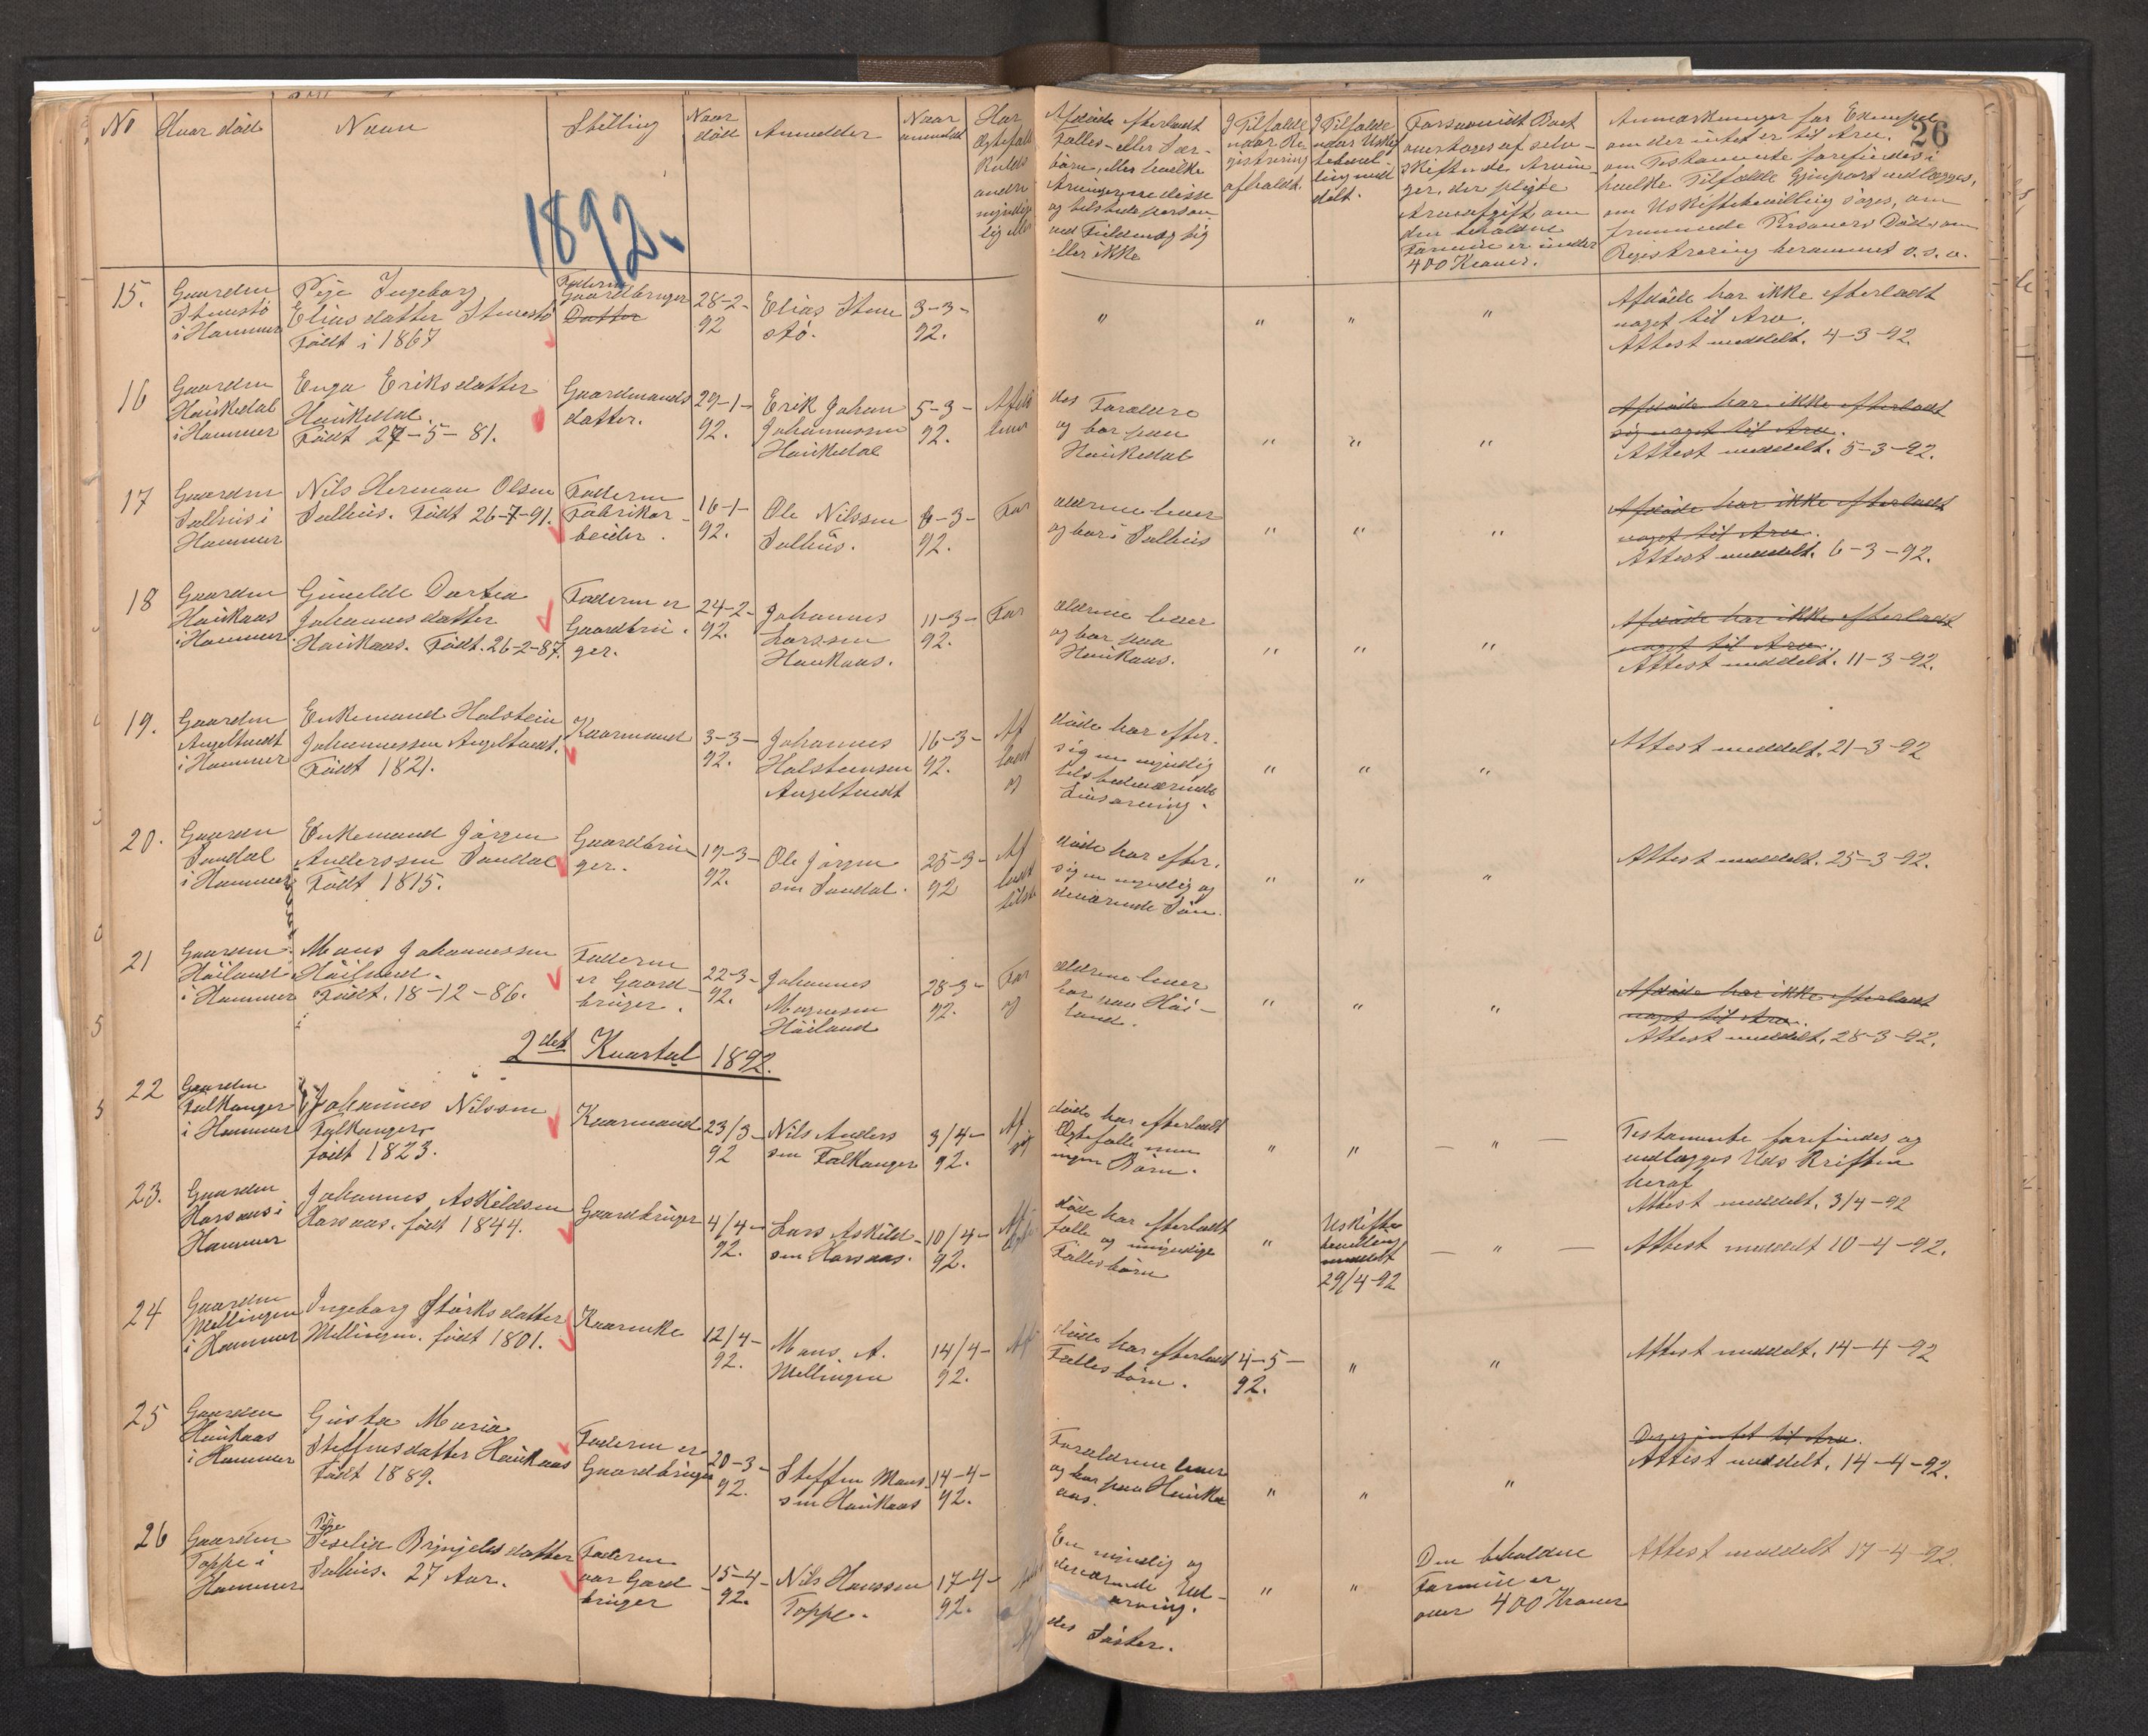 26
No
Hvor död
Navn
Stilling
Naar
död
Anmelder
Naar
anmeldt
Har
Ægtefælle
Afdöde efterladt
Fælles- eller Sær-
börn, eller hvilke
Arvinger, ere disse
og tilstede
eller ikke
I Tilfælde
naar Re
gistrering
afholdt.
I Tilfælde
naar Uskif
tebevil-
ling med
delt.
Forsaavidt Boet
overtages af selv-
skiftende Arvin
ger, der pligte
Arveafgift, om
den beholdne
Formue er under
400 Kroner.
Anmærkninger for Exempel
om der intet er til Arv,
om Testamente forefindes i
hvilke Tilfælde Gjenpart vedlægges,
om Uskiftebevilling söges, om
fremmede Personers Död, om
Registrering berammet o.s.v.
1892.
15.
Gaarden
Stuestö
i Hammer
Pige Ingeborg
Eliasdatter Stuestö
Födt i 1867
Faderen
Gaardbruger
Datter
28-2-
92
Elias Stue
stö.
3-3-
92.
"
"
"
"
Afdöde har ikke efterladt
noget til Arv.
Attest meddelt. 4-3-92.
16
Gaarden
Haukedal
i Hammer
Enga Eriksdatter
Haukedal.
Födt 27-5-81.
Gaardmands
datter.
29-1-
92.
Erik Johan
Johannessen
Haukedal
5-3-
92.
Afdö des Forældre
lever og bor paa
Haukedal
"
"
"
Afdöde har ikke efterladt
sig noget til Arv.
Attest meddelt. 5-3-92.
17
Gaarden
Salhus i
Hammer
Nils Herman Olsen
Salhus. Födt 26-7-91.
Faderen
Fabrikar-
beider.
16-1-
92.
Ole Nilssen
Salhus.
6-3-
92.
For ældrene lever
og bor i Salhus
"
"
"
Afdöde har ikke efterladt
noget til Arv.
Attest meddelt. 6-3-92.
18
Gaarden
Haukaas
i Hammer.
Gunelde Dortea
Johannesdatter
Haukaas. Födt. 26-2-87.
Faderen er
Gaardbru-
ger.
24-2-
92.
Johannes
Larssen
Haukaas.
11-3-
92.
For ældrene lever
og bor paa
Haukaas.
"
"
"
Afdöde har ikke efterladt
noget til Arv.
Attest meddelt. 11-3-92.
19.
Gaarden
Angeltvedt
i Hammer
Enkemand Halstein
Johannessen Angeltvedt.
Födt 1821.
Kaarmand
3-3-
92.
Johannes
Halsteinsen
Angeltvedt
16-3-
92.
Af döde har efter-
ladt sig en myndig
og tilstedeværende
Livsarving.
"
"
"
Attest meddelt. 21-3-92
20.
Gaarden
Sandal
i Hammer
Enkemand Jörgen
Anderssen Sandal
Födt 1815.
Gaardbru-
ger.
19-3-
92.
Ole Jörgen
sen Sandal.
25-3-
92
Af döde har efter-
ladt sig en myndig og
tilste deværende Sön.
"
"
"
Attest meddelt. 25-3-92.
21
Gaarden
Höiland
i Hammer
Mons Johannessen
Höiland.
Födt. 18-12-86.
Faderen
er Gaard-
bruger.
22-3-
92.
Johannes
Magnesen
Höiland
28-3-
92.
For ældrene lever
og bor paa Höi-
land.
"
"
"
Afdöde har ikke efterladt
noget til Arv.
Attest meddelt. 28-3-92.
2det Kvartal 1892.
22
Gaarden
Falkanger
i Hammer
Johannes Nilssen
Falkanger
födt 1823.
Kaarmand
23/3-
92
Nils Anders
sen Falkanger
3/4-
92.
Af döde har efterladt
sig Ægtefælle men
ingen Börn.
"
"
— " —
Testamente forefindes og
vedlægges Udskriften
heraf
Attest meddelt. 3/4-92
23.
Gaarden
Horsaas i
Hammer
Johannes Askeldsen
Horsaas. födt 1844.
Gaardbruger
4/4-
92.
Lars Askild-
sen Horsaas.
10/4-
92.
Af döde har efterladt
Ægte fælle og umyndige
Fællesbörn
"
Uskifte
bevilling
meddelt
29/4-92
— " —
Attest meddelt 10-4-92.
24
Gaarden
Mellingen
i Hammer
Ingeborg Störksdatter
Mellingen. födt 1801.
Kaarenke
12/4-
92.
Mons A.
Mellingen
14/4-
92.
Af döde har efterladt
Fællesbörn.
4-5-
92.
"
"
Attest meddelt. 14-4-92
25
Gaarden
Haukaas
i Hammer
Gusta Maria
Steffensdatter Haukaas
Födt 1889.
Faderen er
Gaardbruger
20-3-
92.
Steffen Mons-
sen Haukaas
14-4-
92.
Forældrene lever
og bor paa Hauka
aas.
"
"
"
Der er intet til Arv.
Attest meddelt. 14-4-92.
26
Gaarden
Toppe i
Hammer
Pige
Seselia Brynjelsdatter
Salhus. 27 Aar.
Faderen
var Gard-
bruger
15-4-
92.
Nils Hanssen
Toppe.
17-4-
92.
En myndig og
deværende Ud-
arving.
des Söster.
"
"
Den beholdne
Formue er
over 400 Kroner
Attest meddelt 17-4-92.